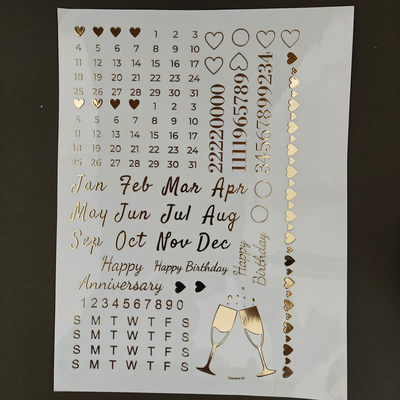 1 2 3
4 5 6 7 8 9 10
11 12 13 14 15 16 17
18 19 20 21 22 23 24
25 26 27 28 29 30 31
1 2 3
4 5 6 7 8 9 10
11 12 13 14 15 16 17
18 19 20 21 22 23 24
25 26 27 28 29 30 31
22220000
1111965789
345678999234
Jan Feb Mar Apr
May Jun Jul Aug
Sep Oct Nov Dec
Happy
Anniversary
Happy Birthday
Happy
Birthday
1 2 3 4 5 6 7 8 9 0
S M T W T F S
S M T W T F S
S M T W T F S
S M T W T F S